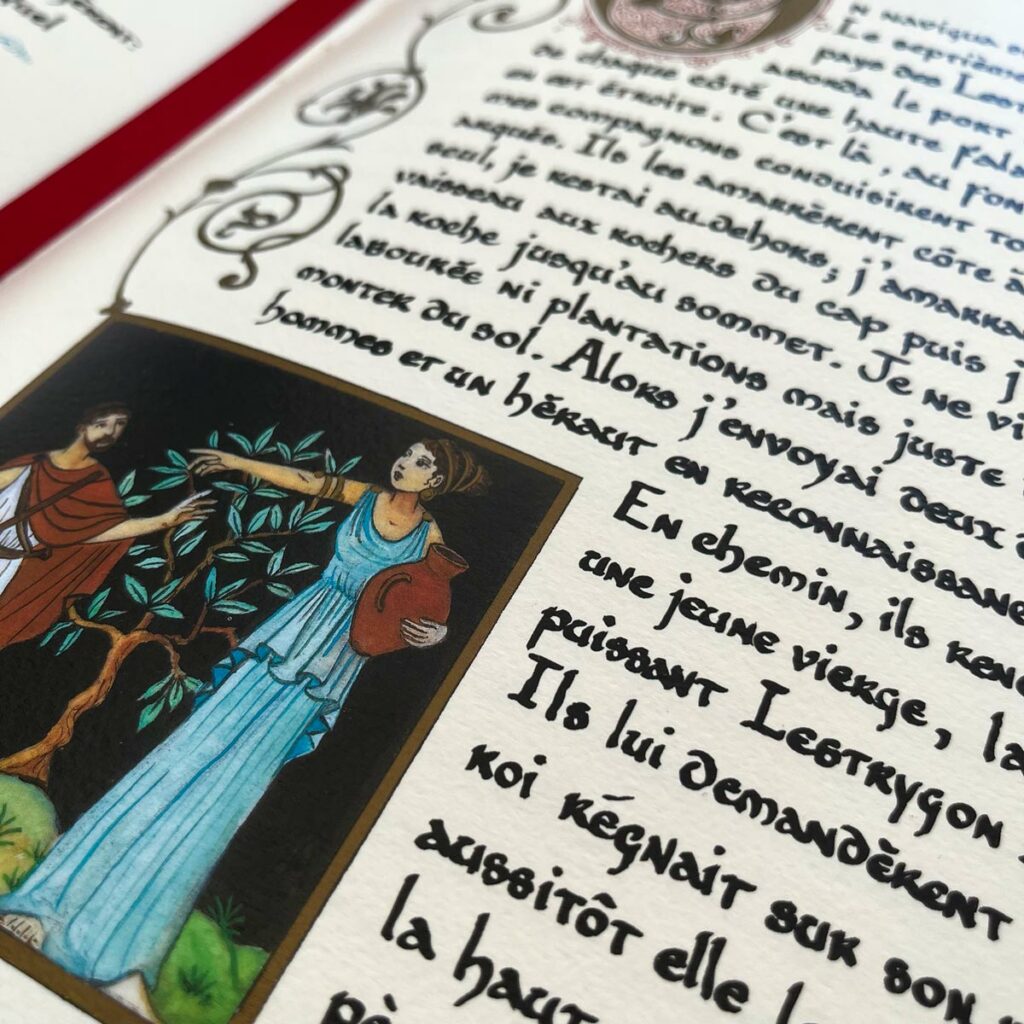 n navigua
Le septième
pays des Lest
aborda le port
de chaque côté une haute falai
en est étroite. C'est là, au fon
mes compagnons conduisirent to
arquée. Ils les amarrèrent côte à
seul, je restai au-dehors; j'amarra
vaisseau aux rochers du cap puis j'
la roche jusqu'au sommet. Je ne vi
labourée ni plantations mais juste
monter du sol. Alors j'envoyai deux
hommes et un héraut en reconnaissance
En chemin, ils renc
une jeune vierge, la
puissant Lestrygon
Ils lui demandèrent
roi régnait sur son
aussitôt elle l
la haut
pè